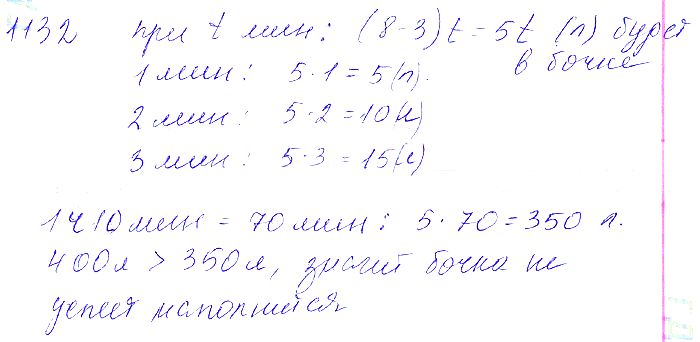 1132 при t мин: (8-3)t = 5t (л) будет
в бочке
1 мин: 5·1=5(л).
2 мин: 5·2=10(л)
3 мин: 5·3=15(л)
1ч10мин = 70мин: 5·70=350 л.
400л > 350л, значит бочка не
успеет наполнится